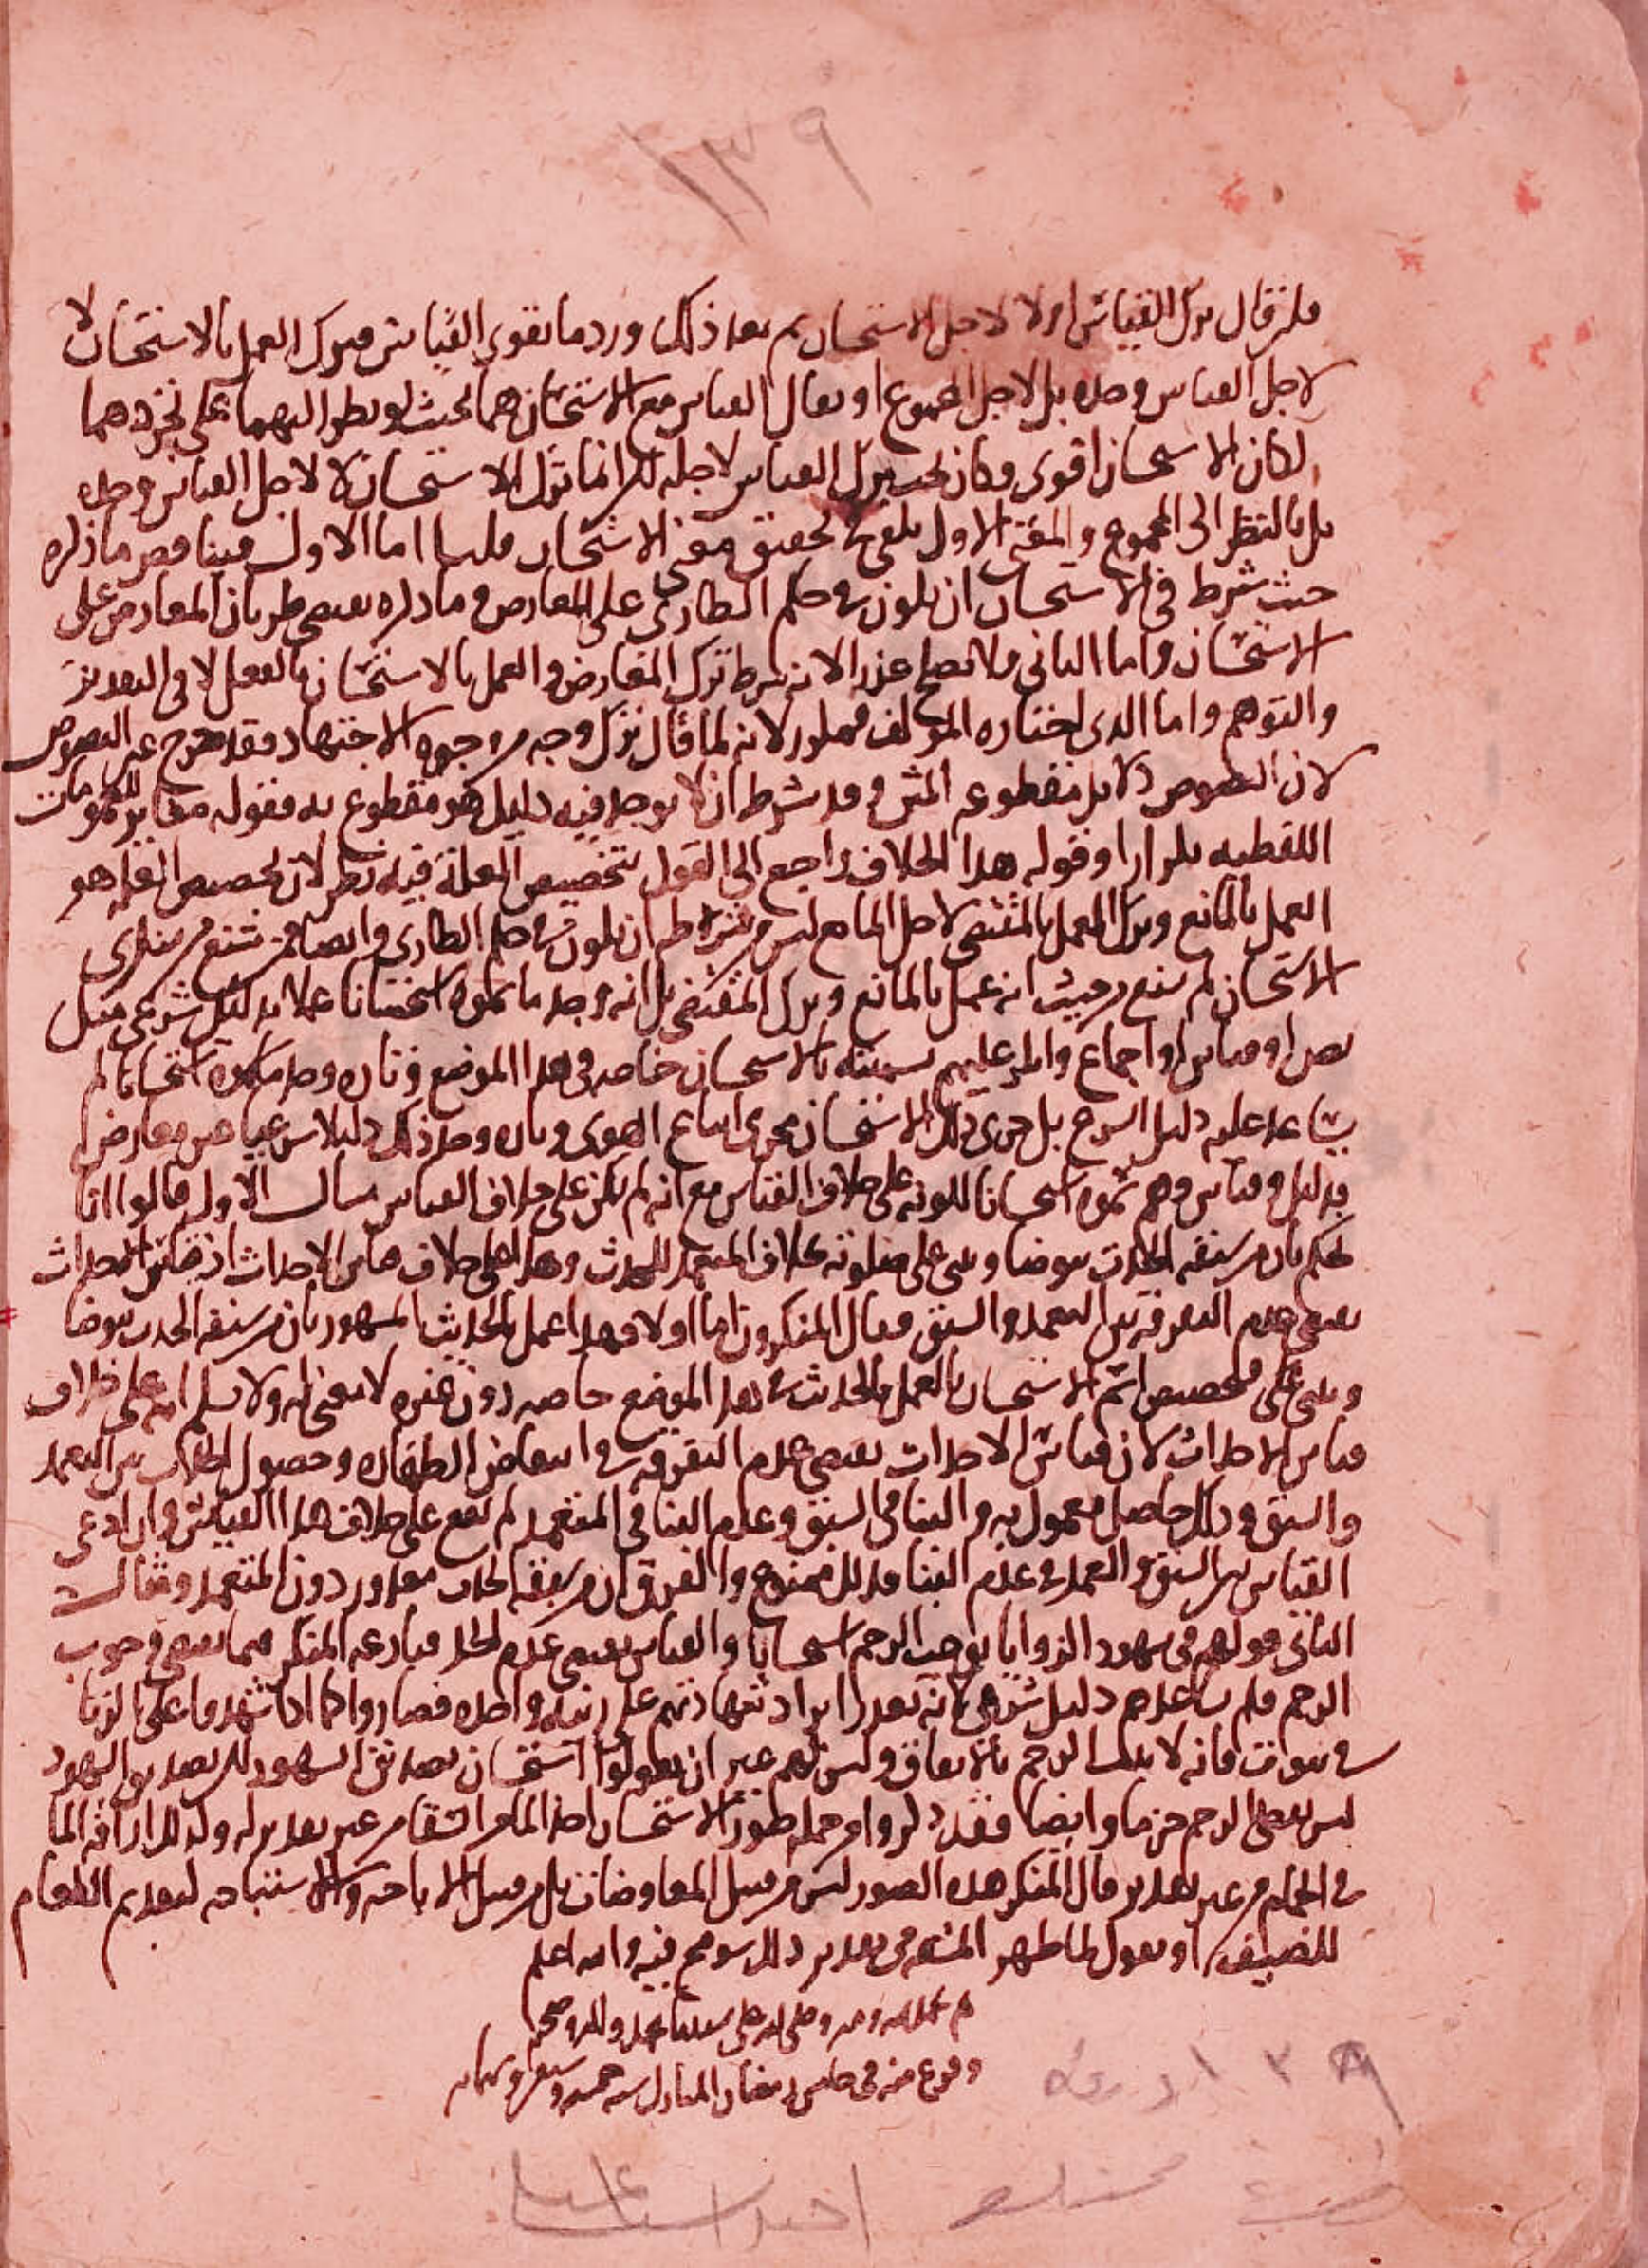 ١٣٩
فلئن قال ترك القياس اولا لاجل الاستحسان ثم بعد ذلك ورد ما يقوي القياس فيترك العمل بالاستحسان لا
لاجل القياس وحده بل لاجل المجموع او يقال القياس مع الاستحسان هما بحيث لو نظر اليهما على تجردهما
لكان الاستحسان اقوى وكان يجب ترك القياس لاجله لكن انما ترك الاستحسان لا لاجل القياس وحده
بل بالنظر الى المجموع والمعنى الاول يكفي في تحقيق معنى الاستحسان قلنا اما الاول فيناقض ما ذكره
حيث شرط في الاستحسان ان يكون في حكم الطارئ على المعارض وما ذكره يقتضي طريان المعارض على
الاستحسان واما الثاني فلا يصلح عذرا لانه شرط ترك المعارض والعمل بالاستحسان بالفعل لا في التقدير
والتوهم واما الذي اختاره المؤلف لانه لما قال ترك وجه من وجوه الاجتهاد فقد خرج عنه النصوص
لان النصوص دلايل مقطوعة المتن وقد شرط ان لا يوجد فيه دليل هو مقطوع به فقوله مغاير للعمومات
اللفظيه تكرارا وقوله هذا الخلاف راجع الى القول بتخصيص العلة فيه نظر لان تخصيص العله هو
العمل بالمانع وترك العمل بالمقتضي لاجل المانع ليس من شرطه ان يكون في حكم الطارئ وايضا فمن شنع من منكري
الاستحسان لم يشنع من حيث انه عمل بالمانع وترك المقتضي بل انه وجد ما سموه استحسانا عملا بدليل شرعي مثل
نص او قياس او اجماع وانكر عليهم تسميته بالاستحسان خاصه في هذا الموضع وتارة وجد ما سموه استحسانا لم
يساعد عليه دليل الشرع بل جرى ذلك الاستحسان مجرى اتباع الهوى وتارة وجد ذلك دليلا شرعيا غير معارض
بدليل وقياس وهم سموه استحسانا لكونه على خلاف القياس مع انه لم يكن على خلاف القياس مثال الاول قالوا انا
نحكم بان من سبقه الحدث يتوضا ويبني على صلوته بخلاف المتعمد للحدث وهذا على خلاف قياس الاحداث اذ قياس الاحداث
يقتضي عدم التفرقة بين التعمد والسبق فقال المنكرون اما اولا فهذا عمل بالحديث المشهور بان من سبقه الحدث يتوضا
ويبني على فتخصيص اسم الاستحسان بالعمل بالحديث في هذا الموضع خاصه دون غيره لا معنى له ولا نسلم انه على خلاف
قياس الاحداث لان قياس الاحداث يقتضي عدم التفرقه في انتقاض الطهاره وحصول الحدث بين التعمد
والسبق وذلك حاصل معمول به والبنا في السبق وعدم البنا في المتعمد لم يقع على خلاف هذا القياس وان ادعى
القياس بين السبق والعمد في عدم البنا فذلك ممنوع والفرق ان من سبقه الحدث معذور دون المتعمد ومثال
الثاني قولهم في شهود الزوايا يوجب الرجم استحسانا والقياس يقتضي عدم الحد فنازعه المنكر فيما يقتضي وجوب
الرجم فلم يساعدهم دليل شرعي لانه تعذر ايراد شهادتهم على زنية واحده فصاروا كما اذا شهدوا على الزنا
في بيوت فانه لا يثبت الرجم بالاتفاق وليس لهم غير ان يقولوا استحسان تصديق الشهود لكن تصديق الشهود
ليس يقتضي الرجم جزما وايضا فقد ذكروا من جمله صور الاستحسان اخذ الماء من السقا من غير تقدير له وكذلك اراقة الما
في الحمام من غير تقدير قال المنكر هذه الصور ليس من قبيل المعاوضات بل من قبيل الاباحه والاستباحه لتقديم الطعام
للضيف او يقول لما ظهر المشقه من تقدير ذلك سومح فيه والله اعلم
تم بحمد الله ومنه وصلى الله على سيدنا محمد واله وصحبه
وفرغ منه في خامس رمضان المبارك سنه خمسه وسبعين وثمانمايه
١٣٩ ورقة